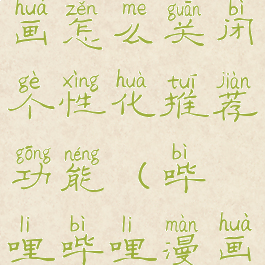 huà zěn me guān bì
画怎么关闭
gè xìng huà tuí jiàn
个性化推荐
gōng néng bì
功能（哔
li bì li màn huà
哩哔哩漫画